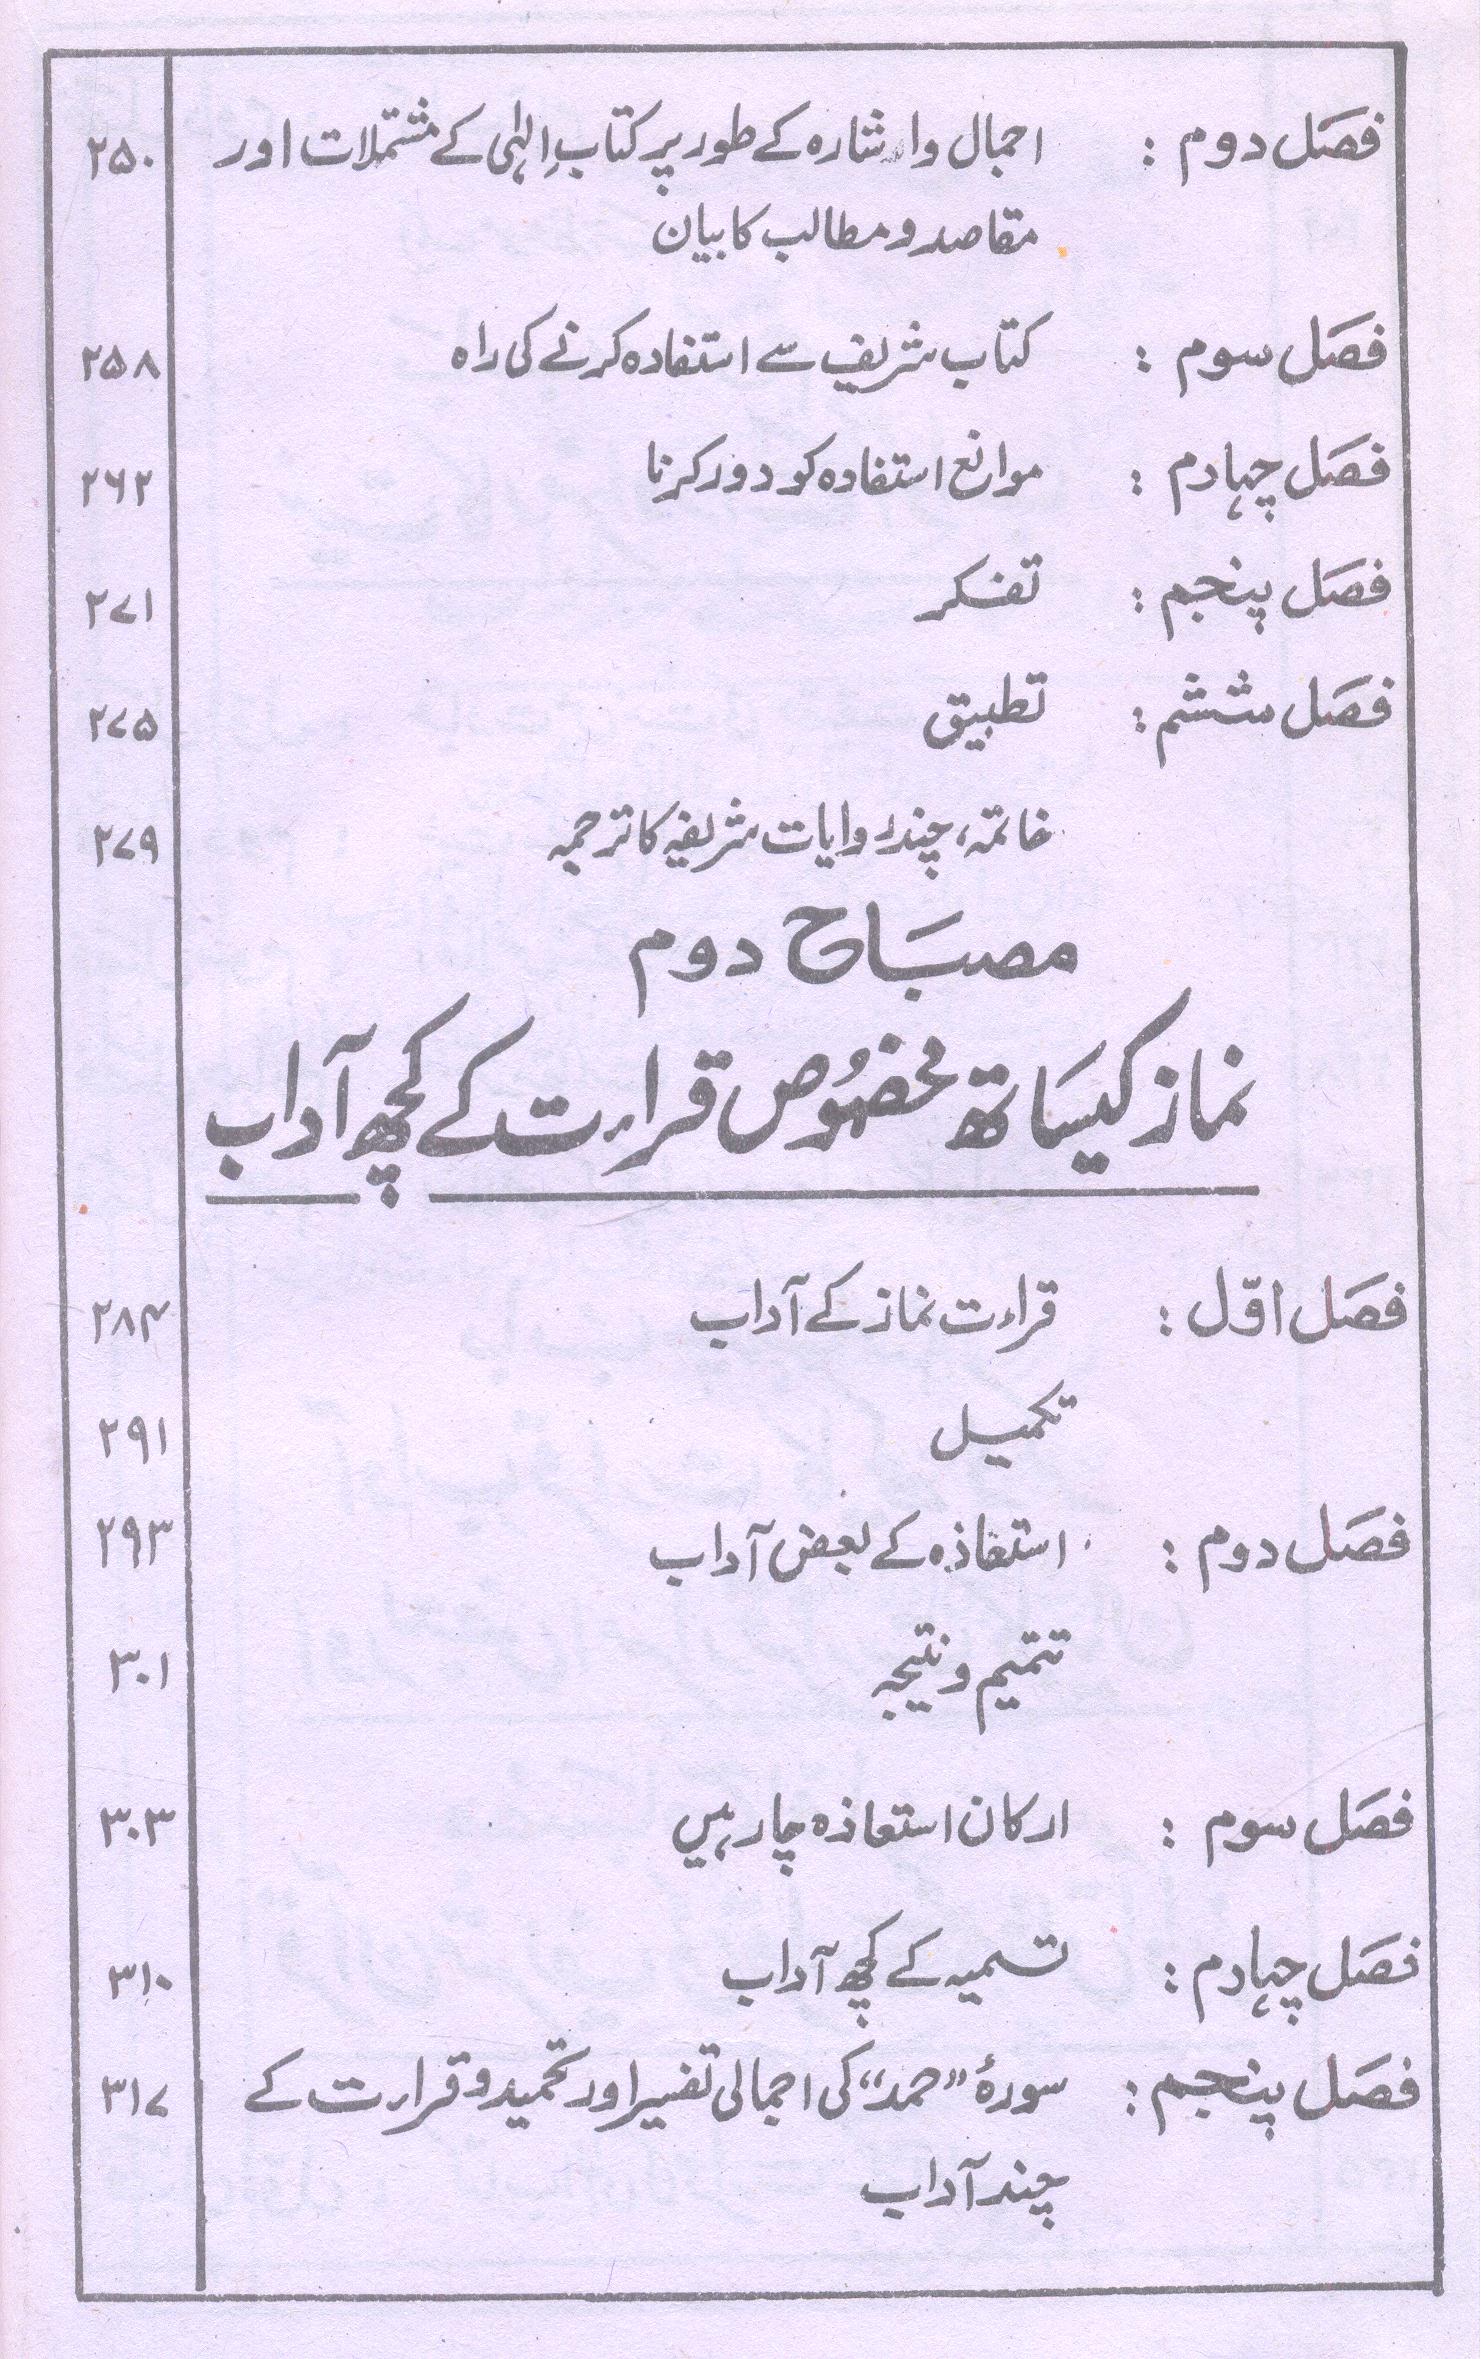 فصل دوم : اجمال واشارہ کے طور پر کتابِ الٰہی کے مشتملات اور ۲۵۰
مقاصد و مطالب کا بیان
فصل سوم : کتاب شریف سے استفادہ کرنے کی راہ ۲۵۸
فصل چہارم : موانع استفادہ کو دور کرنا ۲۶۲
فصل پنجم : تفکر ۲۷۱
فصل ششم : تطبیق ۲۷۵
خاتمہ، چند روایات شریفہ کا ترجمہ ۲۷۹
مصباح دوم
نماز کیساتھ مخصوص قراءت کے کچھ آداب
فصل اوّل : قراءت نماز کے آداب ۲۸۴
تکمیل ۲۹۱
فصل دوم : استعاذہ کے بعض آداب ۲۹۳
تتمیم و نتیجہ ۳۰۱
فصل سوم : ارکان استعاذہ چار ہیں ۳۰۳
فصل چہارم : تسمیہ کے کچھ آداب ۳۱۰
فصل پنجم : سورۂ ”حمد“ کی اجمالی تفسیر اور تحمید و قراءت کے ۳۱۷
چند آداب